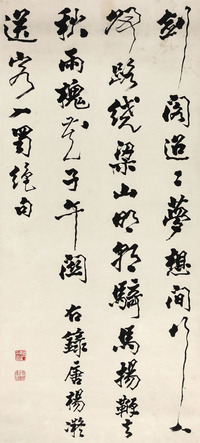 劍閣迢々夢想間行人
歸路繞梁山明朝騎馬揚鞭去
秋雨槐花子午關 右錄唐楊凝
送客入蜀絕句